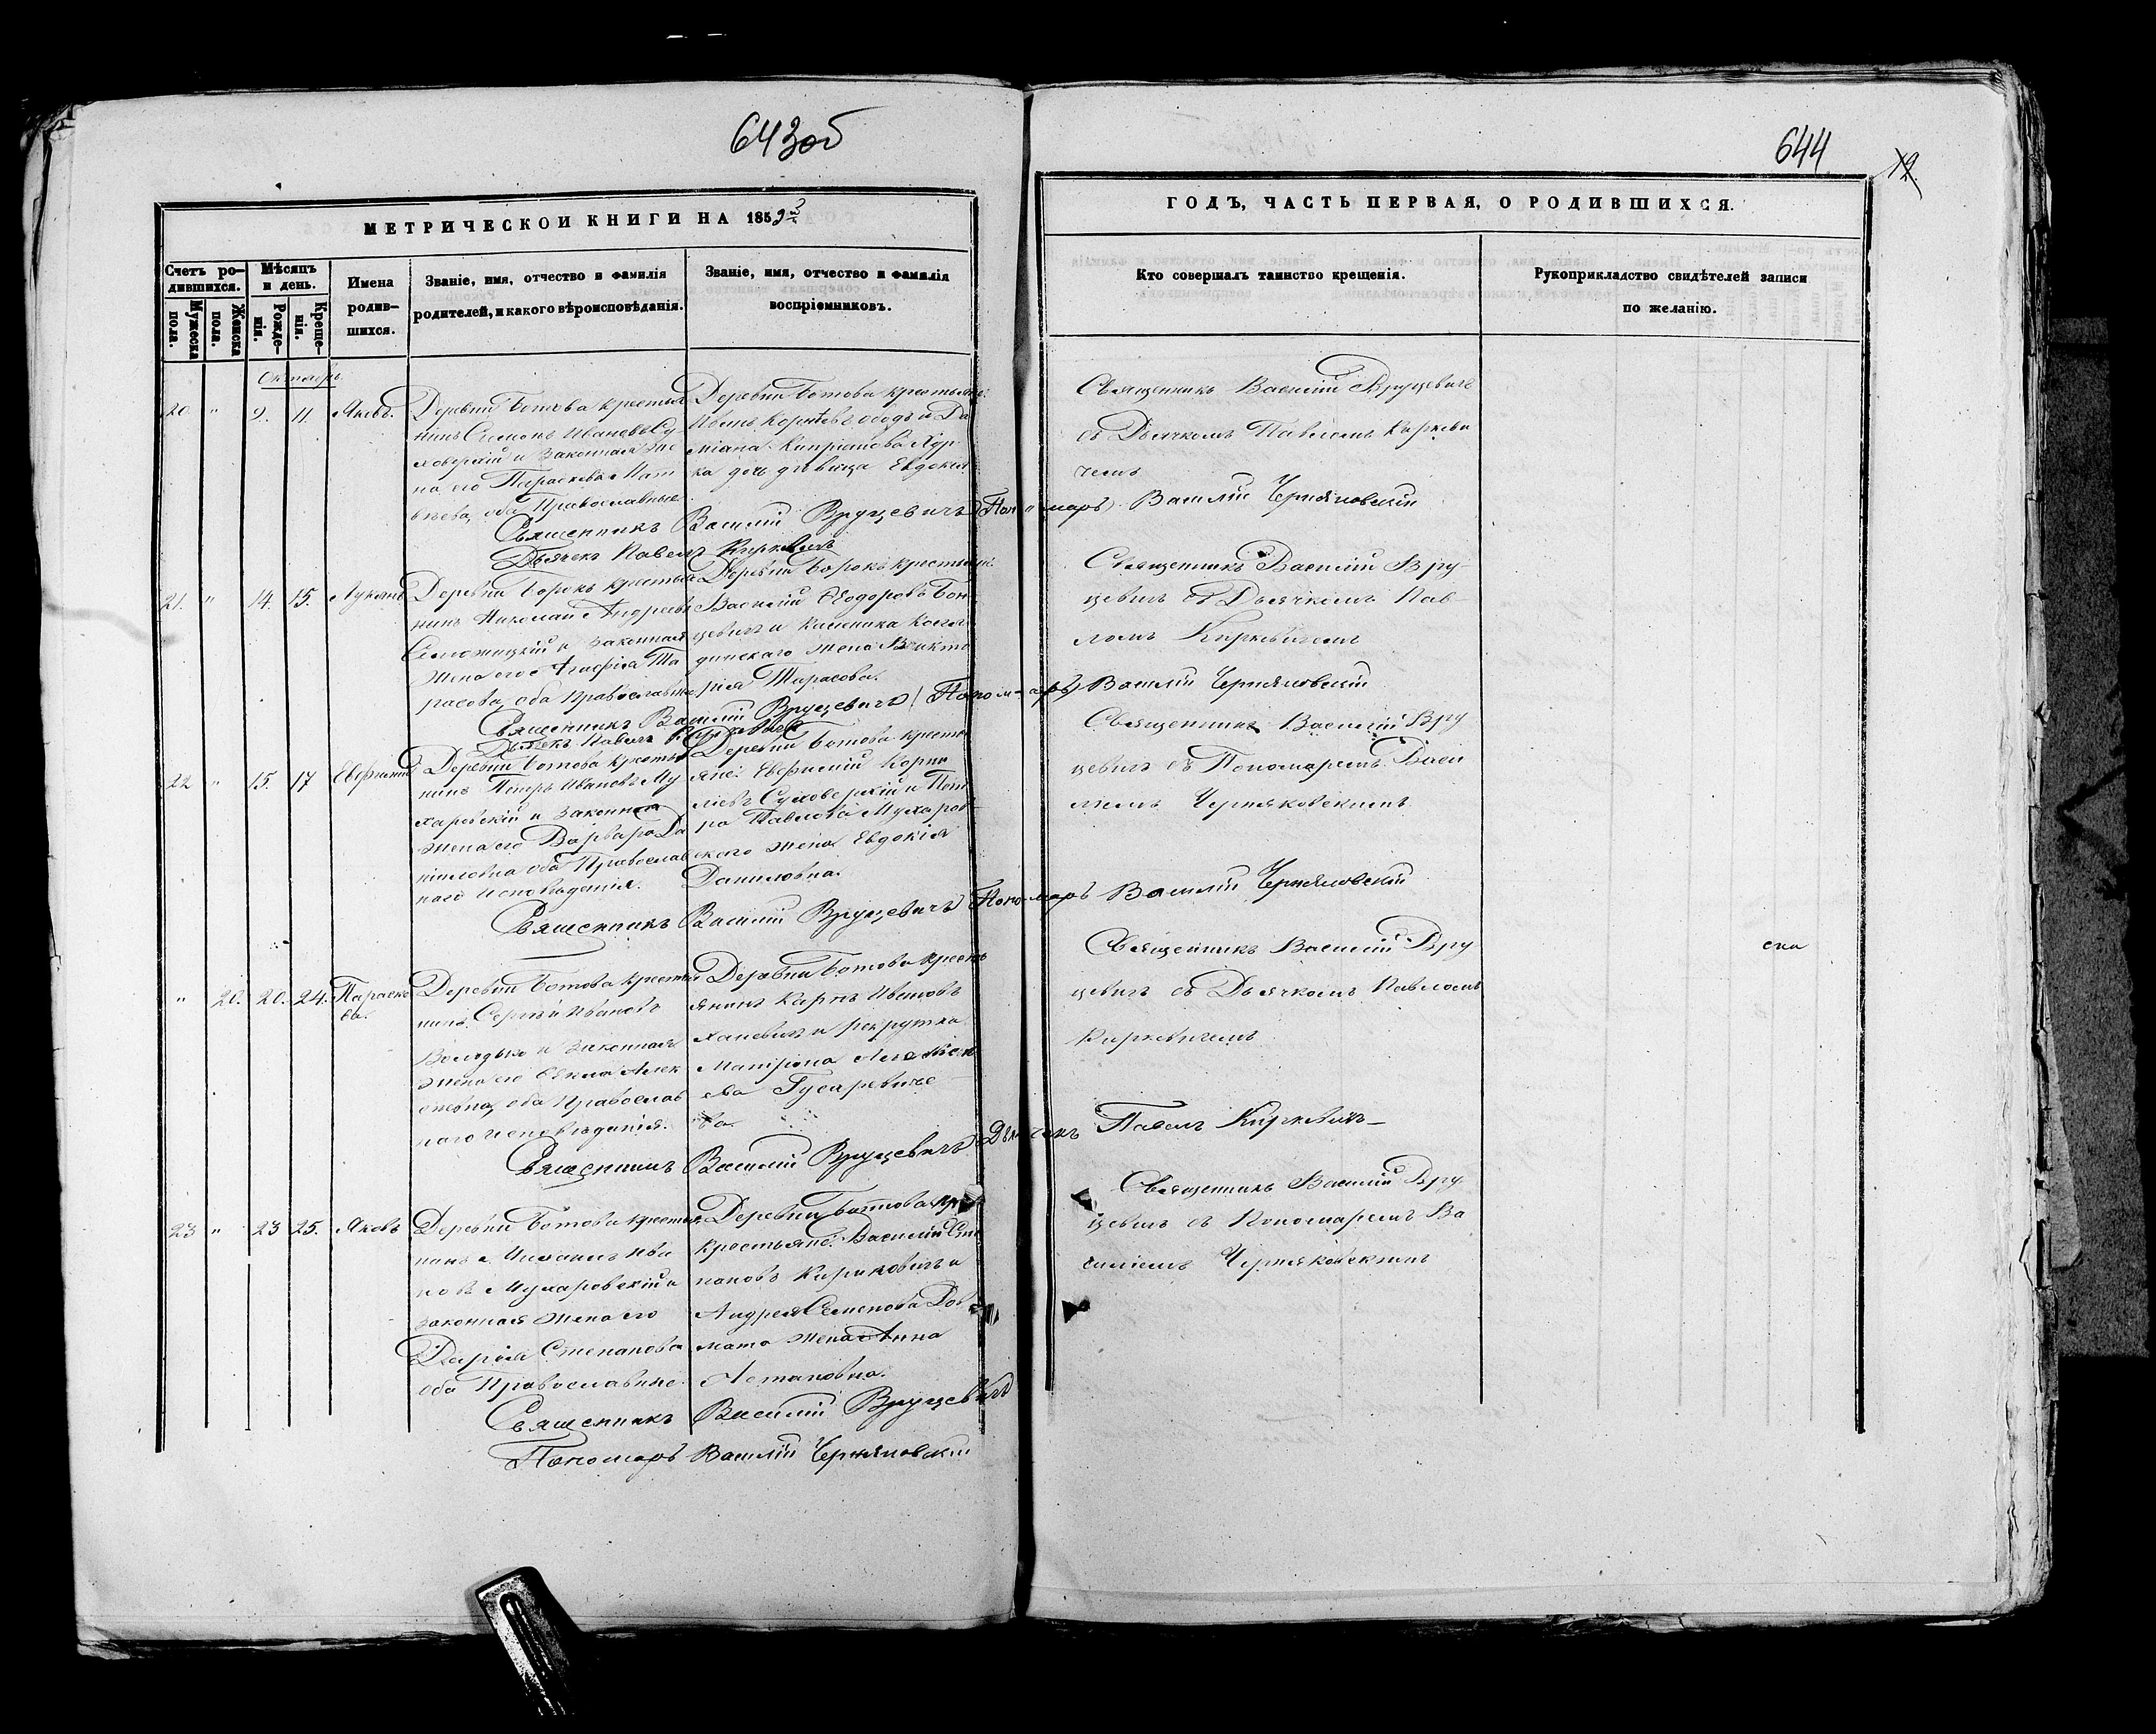 643об
644
12.
МЕТРИЧЕСКОЙ КНИГИ НА 1853
ГОДЪ, ЧАСТЬ ПЕРВАЯ, О РОДИВШИХСЯ.
Счетъ ро-
дившихся.
Мужеска
пола.
Женска
пола.
Мѣсяцъ
и день.
Рожде-
нія.
Креще-
нія.
Имена
родив-
шихся.
Званіе, имя, отчество и фамилія
родителей, и какого вѣроисповѣданія.
Званіе, имя, отчество и фамилія
воспріемниковъ.
Кто совершалъ таинство крещенія.
Рукоприкладство свидѣтелей записи
по желанію.
Октябрь.
20 " 9. 11. Яковъ.
Деревни Ботова крестья
нинъ Симонъ Ивановъ Су
ховерхій и законная же
на его Параскева Мат
вѣева, оба Православные.
Деревни Ботова крестьяне:
Иванъ и Да
міана Кипріанова
ка дочь дѣвица Евдокія
Священникъ Василій Вруцевичь
съ Дьячкомъ Павломъ Киркеви
чемъ
Священникъ Василій Вруцевичъ Пономарь Василій Черняковскій
Дьячекъ Павелъ Киркевичъ
21. " 14. 15. Лукіанъ
Деревни Борокъ крестья
нинъ Николай Андреевъ
и законная
жена его Агафія Та
расова, оба Православные
Деревни Борокъ крестьяне:
Василій Ѳеодоровъ Бон
цевичъ и
динскаго жена Викто
рія Тарасова.
Священникъ Василій Вру-
цевичъ съ Дьячкомъ Пав-
ломъ Киркевичемъ
Священникъ Василій Вруцевичъ Пономарь Василій Черняковскій
Дьячекъ Павелъ Киркевичъ
22 " 15. 17 Евфимій
Деревни Ботова крестья
нинъ Петръ Ивановъ Му
харовскій и законная
жена его Варвара Да
ниловна оба Православ
наго исповѣданія.
Деревни Ботова кресть
яне: Евфимій Корни
ліевъ Суховерхій и Пет
ра Павлова Мухаров
скаго жена Евдокія
Даниловна.
Священникъ Василій Вру
цевичъ съ Пономаремъ Васи
ліемъ Черняковскимъ
Священникъ Василій Вруцевичъ Пономарь Василій Черняковскій
" 20. 20. 24. Параске
ва.
Деревни Ботова крестья
нинъ Сергѣй Ивановъ
и законная
жена его Ѳекла Алек
сѣевна, оба Православ
наго исповѣданія.
Деревни Ботова кресть
янинъ Карпъ Ивановъ
Ханевичъ и рекрутка
Матрона Алексѣе
ева Гусаревиче
ва.
Священникъ Василій Вру
цевичъ съ Дьячкомъ Павломъ
Киркевичемъ
ска
Священникъ Василій Вруцевичъ Дьячекъ Павелъ Киркевичъ
23 " 23 25. Яковъ
Деревни Ботова крестья
нинъ Михаилъ Ива
новъ Мухаровскій и
законная жена его
Дарія Степанова
оба Православные.
Деревни Ботова
крестьяне: Василій Сте
пановъ Кириковичъ и
Андрея Семенова Дов
мата жена Анна
Священникъ Василій Вру
цевичъ съ Пономаремъ Ва
силіемъ Черняковскимъ
Священникъ Василій Вруцевичъ
Пономарь Василій Черняковскій